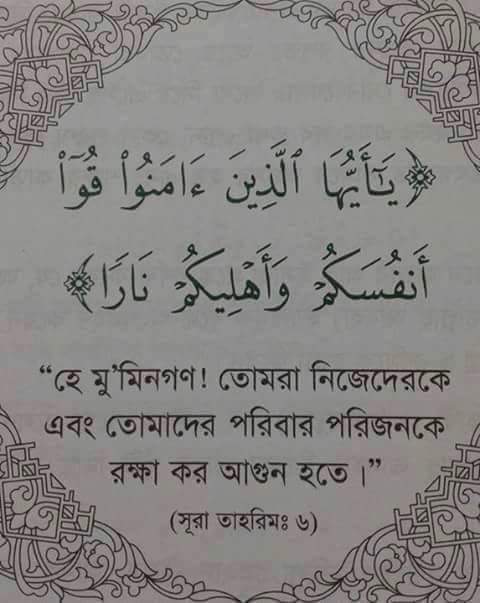 ﴿يَٰٓأَيُّهَا ٱلَّذِينَ ءَامَنُوا۟ قُوٓا۟
أَنفُسَكُمْ وَأَهْلِيكُمْ نَارًا﴾
“হে মু’মিনগণ! তোমরা নিজেদেরকে
এবং তোমাদের পরিবার পরিজনকে
রক্ষা কর আগুন হতে।”
(সূরা তাহরিমঃ ৬)